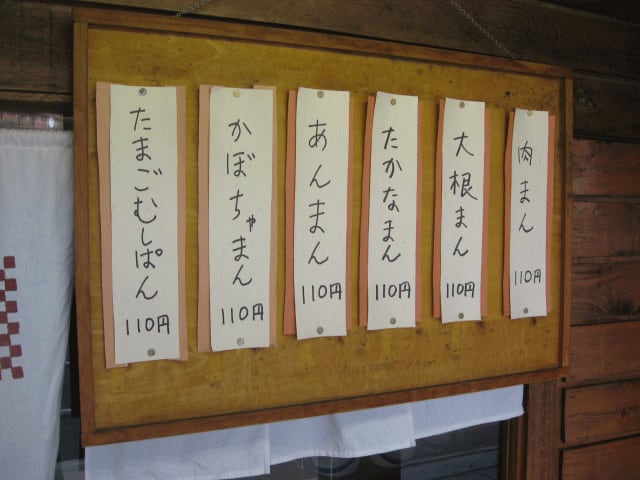 肉まん 110円
大根まん 110円
たかなまん 110円
あんまん 110円
かぼちゃまん 110円
たまごむしぱん 110円